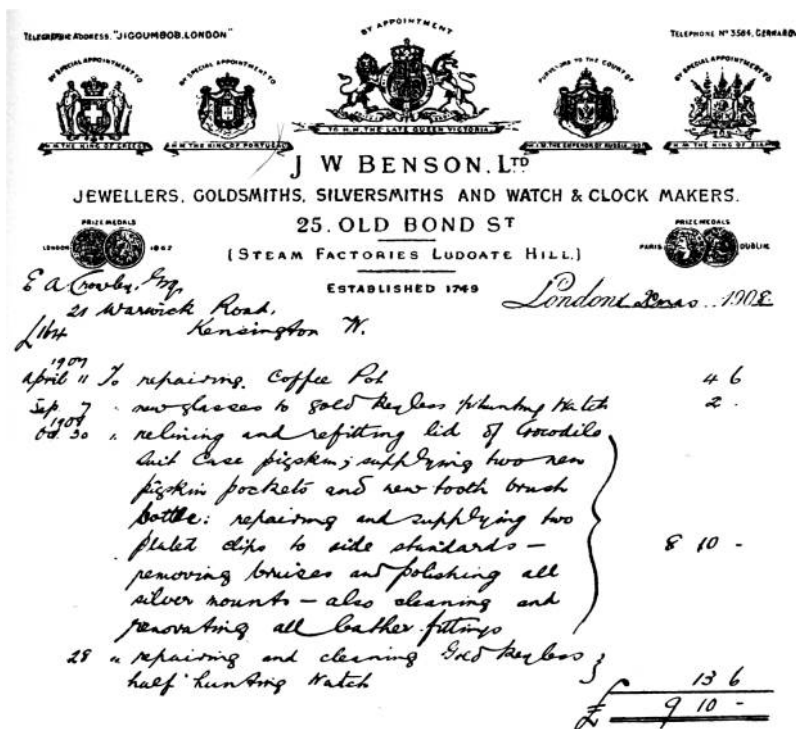 TELEGRAPHIC ADDRESS, "JIGGUMBOB, LONDON"
TELEPHONE Nº 3584, GERRARD
BY SPECIAL APPOINTMENT TO
H.M. THE KING OF GREECE
BY SPECIAL APPOINTMENT TO
H.M. THE KING OF PORTUGAL
BY APPOINTMENT
TO H.M. THE LATE QUEEN VICTORIA
PURVEYORS TO THE COURT OF
H.I.M. THE EMPEROR OF RUSSIA
BY SPECIAL APPOINTMENT TO
H.M. THE KING OF SIAM
J W BENSON, LTD
JEWELLERS, GOLDSMITHS, SILVERSMITHS AND WATCH & CLOCK MAKERS.
25. OLD BOND ST
PRIZE MEDALS
LONDON 1862
PRIZE MEDALS
PARIS DUBLIN
(STEAM FACTORIES LUDGATE HILL.)
ESTABLISHED 1749
E A Crowley, Esq,
London, Xmas 1908.
21 Warwick Road,
£164 Kensington W.
1907
April 11 To repairing Coffee Pot 4 6
Sep. 7 " new glasses to gold keyless ½ hunting Watch 2 .
1908
Oct. 30 " relining and refitting lid of Crocodile
suit case pigskin; supplying two new
pigskin pockets and new tooth brush
bottle: repairing and supplying two
plated clips to side standards — 8 10 -
removing bruises and polishing all
silver mounts — also cleaning and
renovating all leather fittings
28 " repairing and cleaning Gold keyless
half hunting Watch 13 6
£ 9 10 -